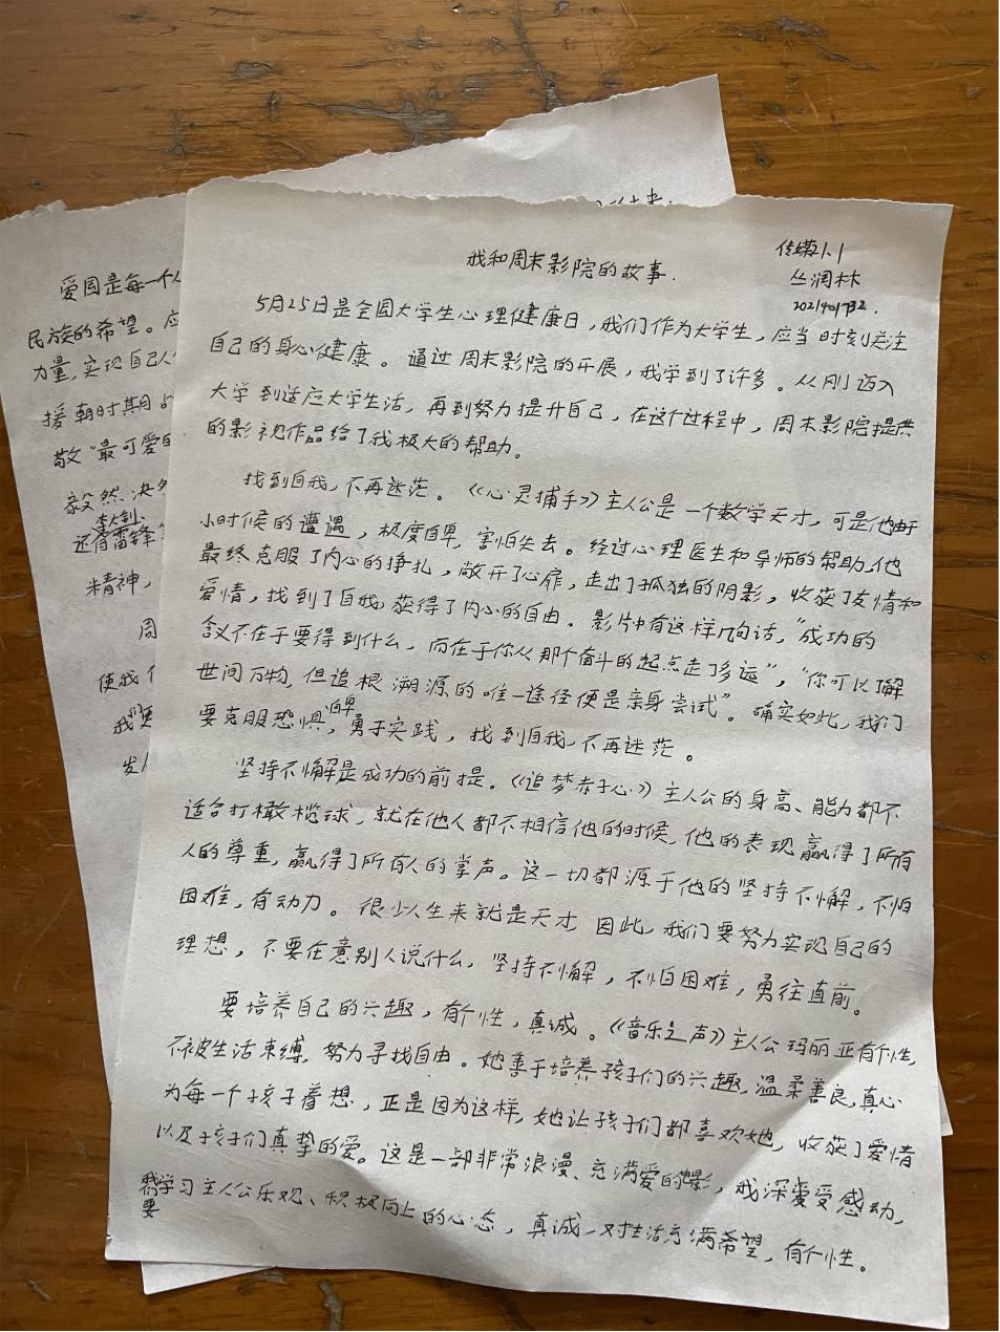 我和周末影院的故事.
丛润林
5月25日是全国大学生心理健康日，我们作为大学生，应当时刻关注
自己的身心健康。通过周末影院的开展，我学到了许多。从刚迈入
大学到适应大学生活，再到努力提升自己，在这个过程中，周末影院提供
的影视作品给了我极大的帮助。
找到自我，不再迷茫。《心灵捕手》主人公是一个数学天才，可是他由于
小时候的遭遇，极度自卑，害怕失去。经过心理医生和导师的帮助，他
最终克服了内心的挣扎，敞开了心扉，走出了孤独的阴影，收获了友情和
爱情，找到了自我，获得了内心的自由。影片中有这样几句话，“成功的
含义不在于要得到什么，而在于你从那个奋斗的起点走了多远”，“你可以了解
世间万物，但追根溯源的唯一途径便是亲身尝试”。确实如此，我们
要克服恐惧，自卑，勇于实践，找到自我，不再迷茫。
坚持不懈是成功的前提。《追梦赤子心》主人公的身高、能力都不
适合打橄榄球，就在他人都不相信他的时候，他的表现赢得了所有
人的尊重，赢得了所有人的掌声。这一切都源于他的坚持不懈，不怕
困难，有动力。很少人生来就是天才，因此，我们要努力实现自己的
理想，不要在意别人说什么，坚持不懈，不怕困难，勇往直前。
要培养自己的兴趣，有个性，真诚。《音乐之声》主人公玛丽亚有个性，
不被生活束缚，努力寻找自由。她善于培养孩子们的兴趣，温柔善良，真心
为每一个孩子着想，正是因为这样，她让孩子们都喜欢她，收获了爱情
以及孩子们真挚的爱。这是一部非常浪漫、充满爱的电影，我深受感动，
我们要学习主人公乐观、积极向上的心态，真诚，对生活充满希望，有个性。
爱国是每一个人
民族的希望。应
力量，实现自己人
援朝时期
敬“最可爱的
毅然决然
还有雷锋
精神，
周
使我们
我更
发